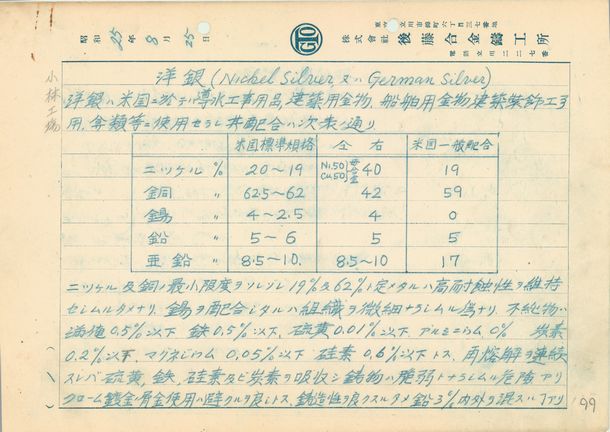 東京都立川市錦町六丁目三七番地
株式會社 後藤合金鑄工所
電話立川二二七番
昭和25年8月25日
GTO
小林工場
洋銀(Nickel Silver 又ハ German Silver)
洋銀ハ米国ニ於テハ導水工事用品,建築用金物,船舶用金物,建築装飾工事
用,等類等ニ使用セラレ其配合ハ次表ノ通リ
米国標準規格 仝右 米国一般配合
ニッケル % 20~19 Ni.50 Cu50 母合金 40 19
銅 〃 62.5~62 42 59
錫 〃 4~2.5 4 0
鉛 〃 5~6 5 5
亜鉛 〃 8.5~10. 8.5~10 17
ニッケル及銅ノ最小限度ヲソレゾレ19%&62%ト定メタルハ高耐蝕性ヲ維持
セシムルタメナリ. 錫ヲ配合シタルハ組織ヲ微細ナラシムル為ナリ. 不純物ハ
満俺0.5%以下 鉄0.5%以下. 硫黄0.01%以下. アルミニウム0% 炭素
0.2%以下. マグネシウム 0.05%以下 硅素0.6%以下トス. 再熔解ヲ連続
スレバ硫黄,鉄,硅素及ビ炭素ヲ吸収シ鋳物ハ脆弱トナラシムル危険アリ
クローム鍍金ノ屑金使用ハ避クルヲ良トス. 鋳造性ヲ良クスルタメ鉛3%内外ヲ混スルアリ
99